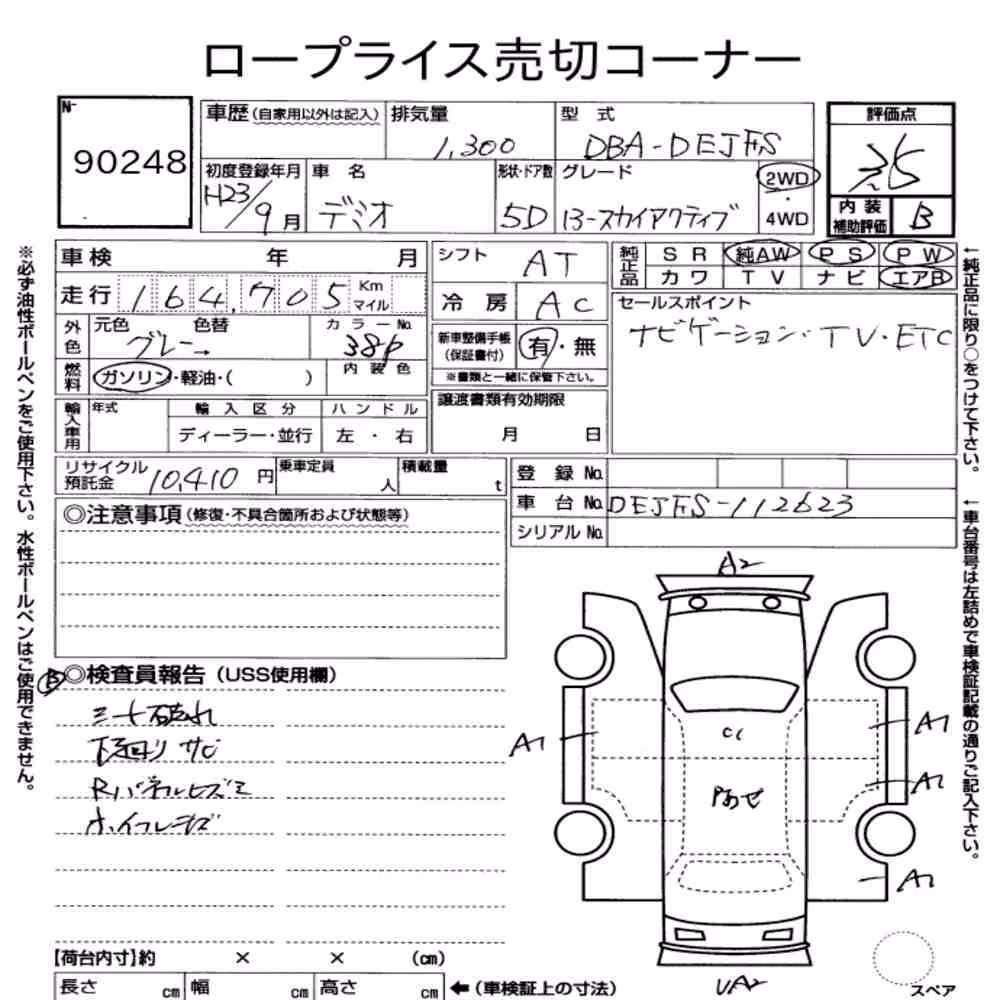 ロープライス売切コーナー
№
90248
車歴 (自家用以外は記入) 排気量 型 式 評価点
1,300 DBA-DEJFS 3.5
初度登録年月 車 名 形状・ドア数 グレード 2WD・4WD
H23/9月 デミオ 5D 13-スカイアクティブ
内装補助評価 B
車検 年 月
走行 164,705 Km マイル
外色 元色 色替 カラー№
グレー 38P
燃料 ガソリン・軽油・( ) 内装色
輸入車用 年式 輸入区分 ハンドル
ディーラー・並行 左・右
シフト AT
冷房 AC
新車整備手帳(保証書付) 有・無
※書類と一緒に保管下さい。
譲渡書類有効期限
月 日
純正品 SR 純AW PS PW
カワ TV ナビ エアB
セールスポイント
ナビゲーション・TV・ETC
←純正品に限り○をつけて下さい。
※必ず油性ボールペンをご使用下さい。水性ボールペンはご使用できません。
リサイクル預託金 10,410 円 乗車定員 人 積載量 t
登録 №
車台 № DEJFS-112623
シリアル №
←車台番号は左詰めで車検証記載の通りご記入下さい。
◎注意事項 (修復・不具合箇所および状態等)
B ◎検査員報告 (USS使用欄)
ミラー破れ
下廻りサビ
Rパネルヒズミ
ホイフレキズ
A2
A1
A1
C1
A1
A1
UA2
スペア
【荷台内寸】約 × × (cm)
長さ cm 幅 cm 高さ cm ←(車検証上の寸法)